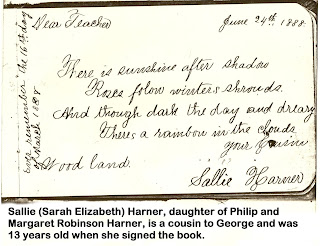 Dear Teacher
June 24th 1888.
There is sunshine after shadow
Roses folow winters shrouds.
And though dark the day and dreary
Theres a rambon in the clouds
Your
Wood land.
Sallie Harner
remember the 16th day
of March 1888
Sallie (Sarah Elizabeth) Harner, daughter of Philip and
Margaret Robinson Harner, is a cousin to George and was
13 years old when she signed the book.